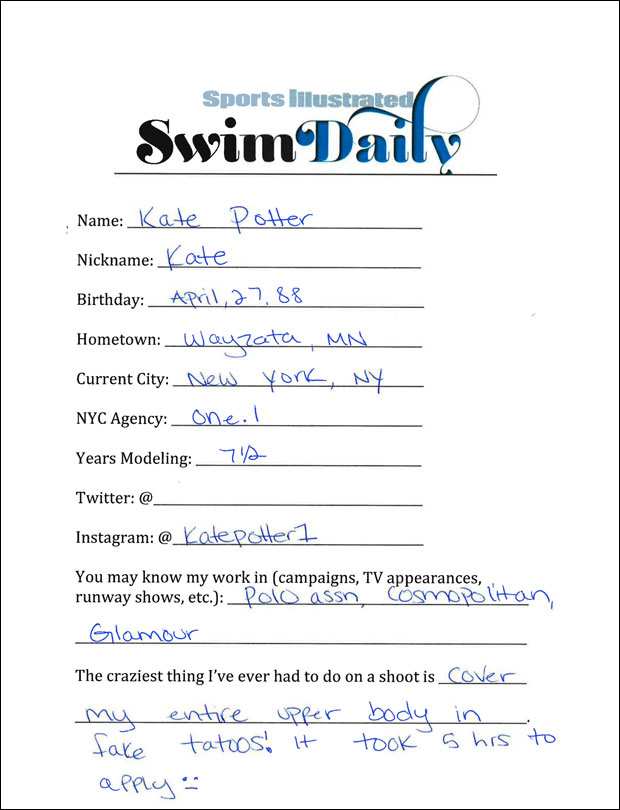 Sports Illustrated
Swim Daily
Name: Kate Potter
Nickname: Kate
Birthday: April, 27, 88
Hometown: Wayzata, MN
Current City: New York, NY
NYC Agency: One.1
Years Modeling: 7 1/2
Twitter: @
Instagram: @ Katepotter1
You may know my work in (campaigns, TV appearances,
runway shows, etc.): Polo assn, Cosmopolitan,
Glamour
The craziest thing I've ever had to do on a shoot is cover
my entire upper body in.
fake tatoos! it took 5 hrs to
apply